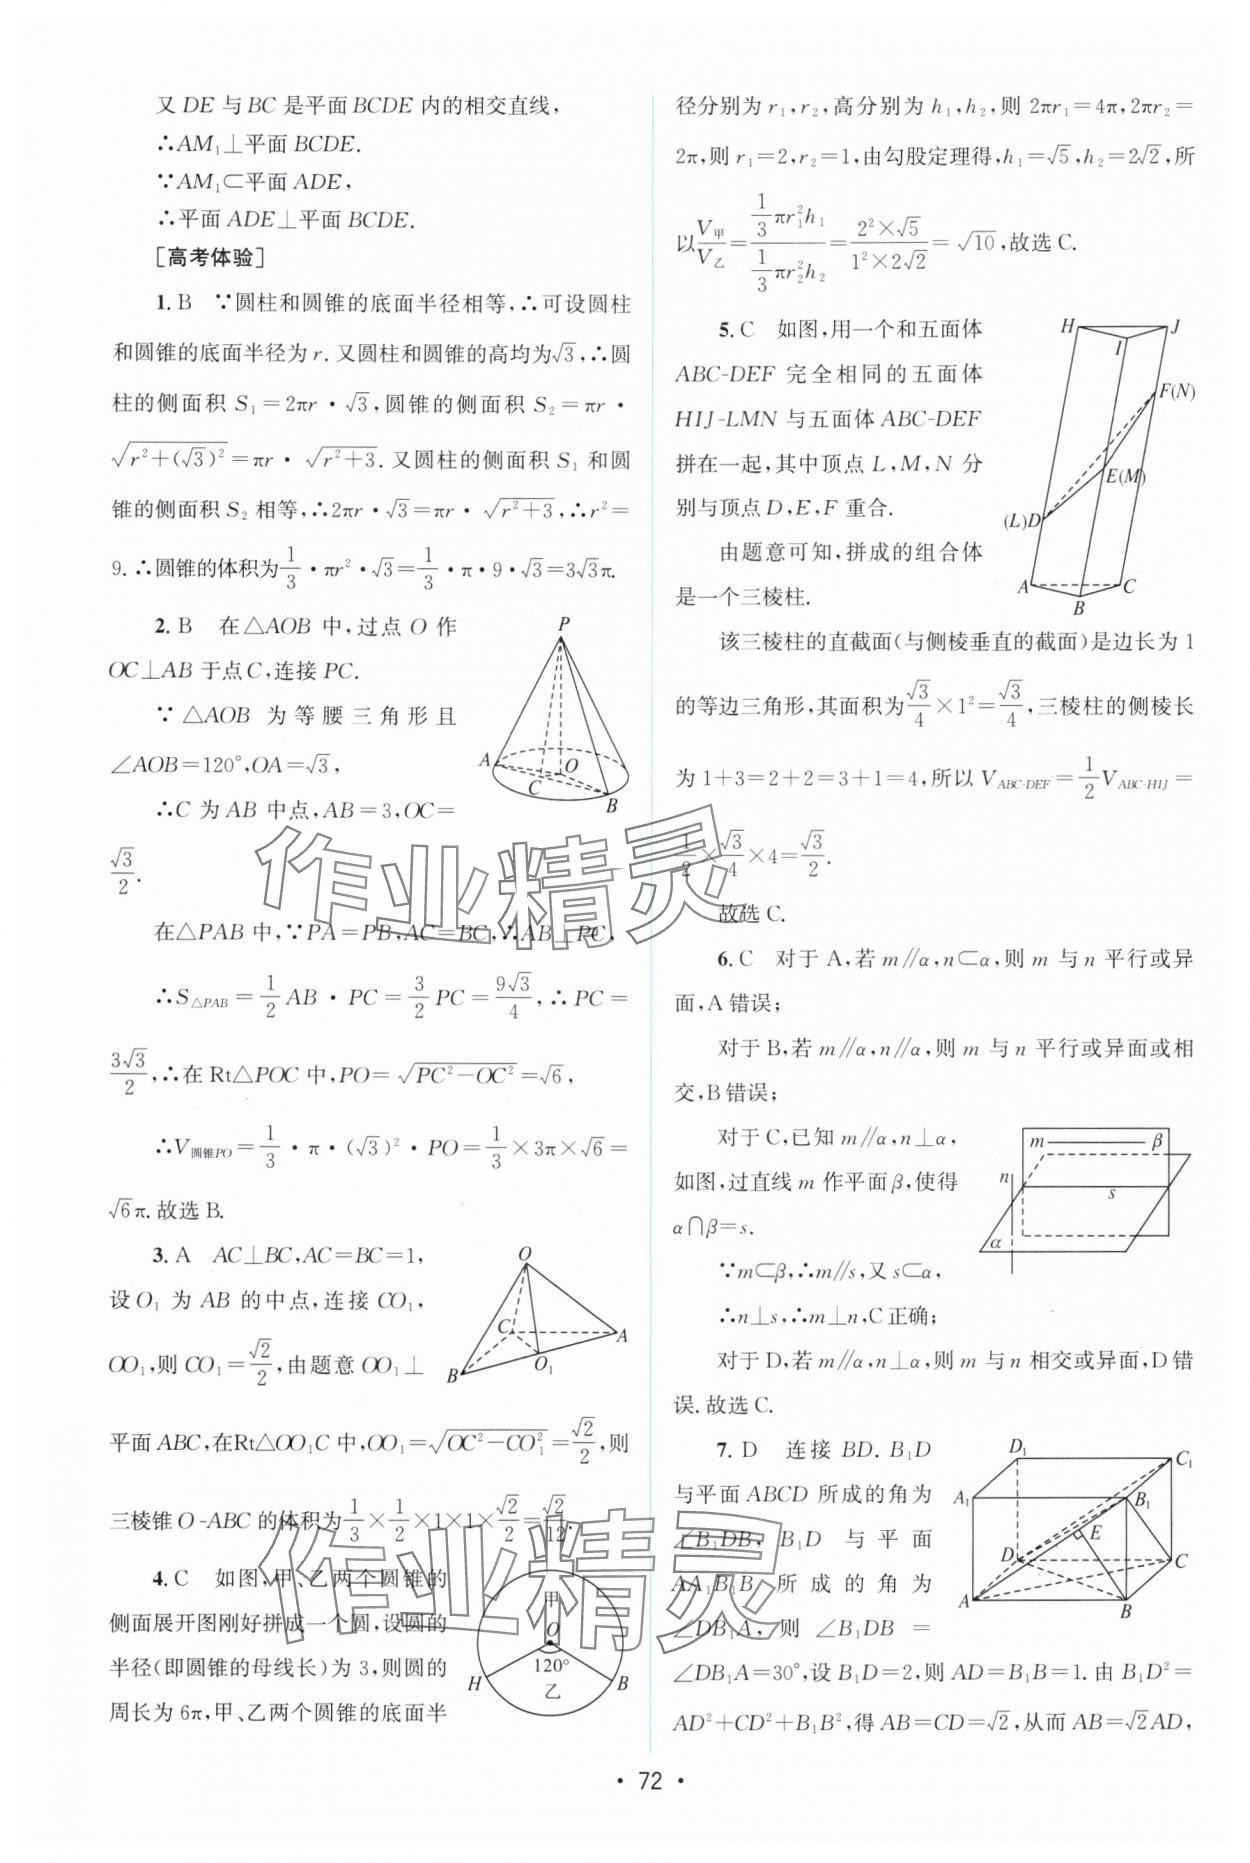 又 DE 与 BC 是平面 BCDE 内的相交直线,
∴AM₁⊥平面 BCDE.
∵AM₁⊂平面 ADE,
∴平面 ADE⊥平面 BCDE.
[高考体验]
1. B ∵圆柱和圆锥的底面半径相等,∴可设圆柱
和圆锥的底面半径为 r. 又圆柱和圆锥的高均为√3,∴圆
柱的侧面积 S₁=2πr·√3,圆锥的侧面积 S₂=πr·
√(r²+(√3)²)=πr·√(r²+3). 又圆柱的侧面积 S₁ 和圆
锥的侧面积 S₂ 相等,∴2πr·√3=πr·√(r²+3),∴r²=
9. ∴圆锥的体积为1/3·πr²·√3=1/3·π·9·√3=3√3π.
2. B 在△AOB 中,过点 O 作
OC⊥AB 于点 C,连接 PC.
∵△AOB 为等腰三角形且
∠AOB=120°,OA=√3,
∴C 为 AB 中点,AB=3,OC=
√3/2.
P
A
O
C
B
在△PAB 中,∵PA=PB,AC=BC,∴AB⊥PC,
∴S△PAB=1/2 AB·PC=3/2 PC=9√3/4,∴PC=
3√3/2,∴在 Rt△POC 中,PO=√(PC²-OC²)=√6,
∴V圆锥PO=1/3·π·(√3)²·PO=1/3×3π×√6=
√6π. 故选 B.
3. A AC⊥BC,AC=BC=1,
设 O₁ 为 AB 的中点,连接 CO₁,
OO₁,则 CO₁=√2/2,由题意 OO₁⊥
O
C
A
B
O₁
平面 ABC,在Rt△OO₁C 中,OO₁=√(OC²-CO₁²)=√2/2,则
三棱锥 O-ABC 的体积为1/3×1/2×1×1×√2/2=√2/12.
4. C 如图,甲、乙两个圆锥的
侧面展开图刚好拼成一个圆,设圆的
半径(即圆锥的母线长)为 3,则圆的
周长为 6π,甲、乙两个圆锥的底面半
甲
O
120°
H
乙
B
径分别为 r₁,r₂,高分别为 h₁,h₂,则 2πr₁=4π,2πr₂=
2π,则 r₁=2,r₂=1,由勾股定理得,h₁=√5,h₂=2√2,所
以V甲/V乙=(1/3πr₁²h₁)/(1/3πr₂²h₂)=(2²×√5)/(1²×2√2)=√10,故选 C.
5. C 如图,用一个和五面体
ABC-DEF 完全相同的五面体
HIJ-LMN 与五面体 ABC-DEF
拼在一起,其中顶点 L,M,N 分
别与顶点 D,E,F 重合.
由题意可知,拼成的组合体
是一个三棱柱.
H
J
I
F(N)
E(M)
(L)D
A
C
B
该三棱柱的直截面(与侧棱垂直的截面)是边长为 1
的等边三角形,其面积为√3/4×1²=√3/4,三棱柱的侧棱长
为 1+3=2+2=3+1=4,所以 V_ABC-DEF=1/2 V_ABC-HIJ=
1/2×√3/4×4=√3/2.
故选 C.
6. C 对于 A,若 m∥α,n⊂α,则 m 与 n 平行或异
面,A 错误;
对于 B,若 m∥α,n∥α,则 m 与 n 平行或异面或相
交,B 错误;
对于 C,已知 m∥α,n⊥α,
如图,过直线 m 作平面 β,使得
α∩β=s.
∵m⊂β,∴m∥s,又 s⊂α,
∴n⊥s,∴m⊥n,C 正确;
m
β
n
s
α
对于 D,若 m∥α,n⊥α,则 m 与 n 相交或异面,D 错
误. 故选 C.
7. D 连接 BD. B₁D
与平面 ABCD 所成的角为
∠B₁DB,B₁D 与平面
AA₁B₁B 所成的角为
∠DB₁A,则∠B₁DB=
D₁
C₁
A₁
B₁
E
D
C
A
B
∠DB₁A=30°,设 B₁D=2,则 AD=B₁B=1. 由 B₁D²=
AD²+CD²+B₁B²,得 AB=CD=√2,从而 AB=√2AD,
· 72 ·
作业精灵
作业精灵